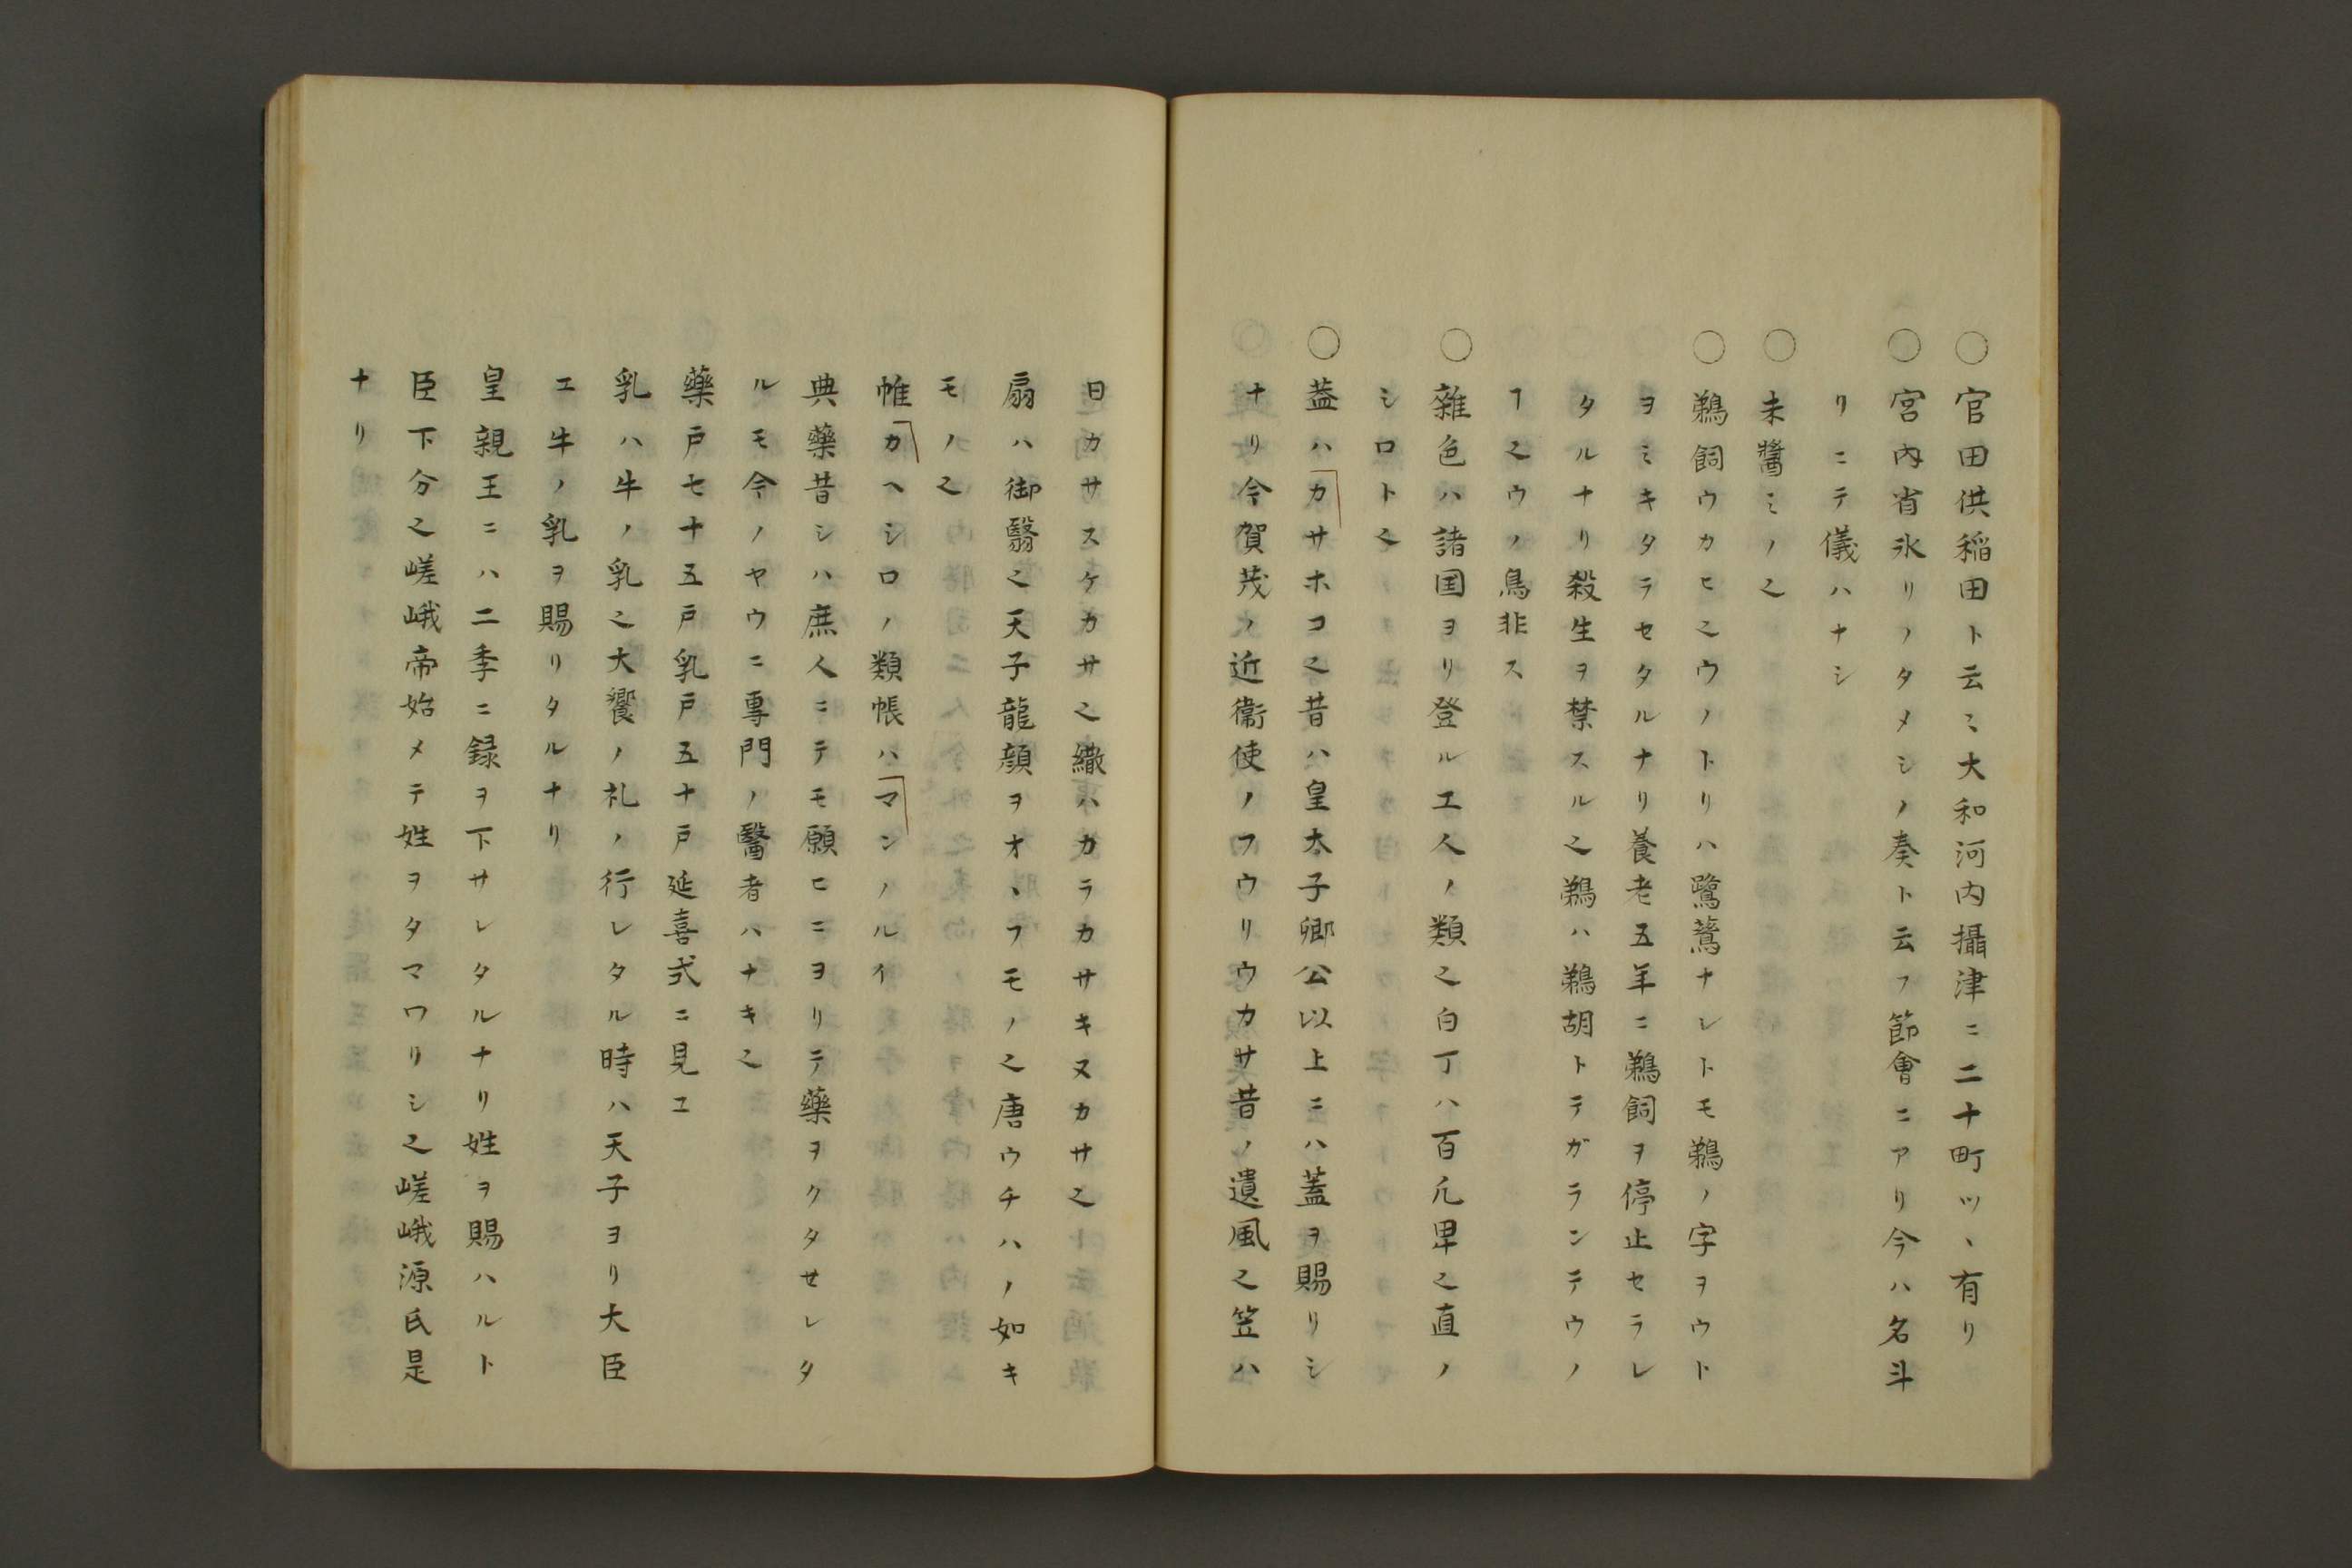 ○官田供稲田ト云ミ大和河内攝津ニ二十町ツヽ有リ
○宮内省氷リノタメシノ奏ト云フ節會ニアリ今ハ名斗
リニテ儀ハナシ
○未醬ミノ之
○鵜飼ウカヒ之ウノトリハ鷺鷥ナレトモ鵜ノ字ヲウト
ヨミキタラセタルナリ養老五年ニ鵜飼ヲ停止セラレ
タルナリ殺生ヲ禁スル之鵜ハ鵜胡トテガランテウノ
ヿ之ウノ鳥非ス
○雜色ハ諸国ヨリ登ル工人ノ類之白丁ハ百凡卑之直ノ
シロト之
○葢ハカサホコ之昔ハ皇太子卿公以上ニハ蓋ヲ賜リシ
ナリ今賀茂ノ近衞使ノフウリウカサ昔ノ遺風之笠ハ
日カサスケカサ之繖ハカラカサキヌカサ之
扇ハ御翳之天子龍顔ヲオヽフモノ之唐ウチハノ如キ
モノ之
帷カヘシロノ類帳ハマンノルイ
典藥昔シハ庶人ニテモ願ヒニヨリテ藥ヲクタセレタ
ルモ今ノヤウニ専門ノ醫者ハナキ之
藥戸七十五戸乳戸五十戸延喜式ニ見エ
乳ハ牛ノ乳之大饗ノ礼ノ行レタル時ハ天子ヨリ大臣
エ牛ノ乳ヲ賜リタルナリ
皇親王ニハ二季ニ録ヲ下サレタルナリ姓ヲ賜ハルト
臣下分之嵯峨帝始メテ姓ヲタマワリシ之嵯峨源氏是
ナリ